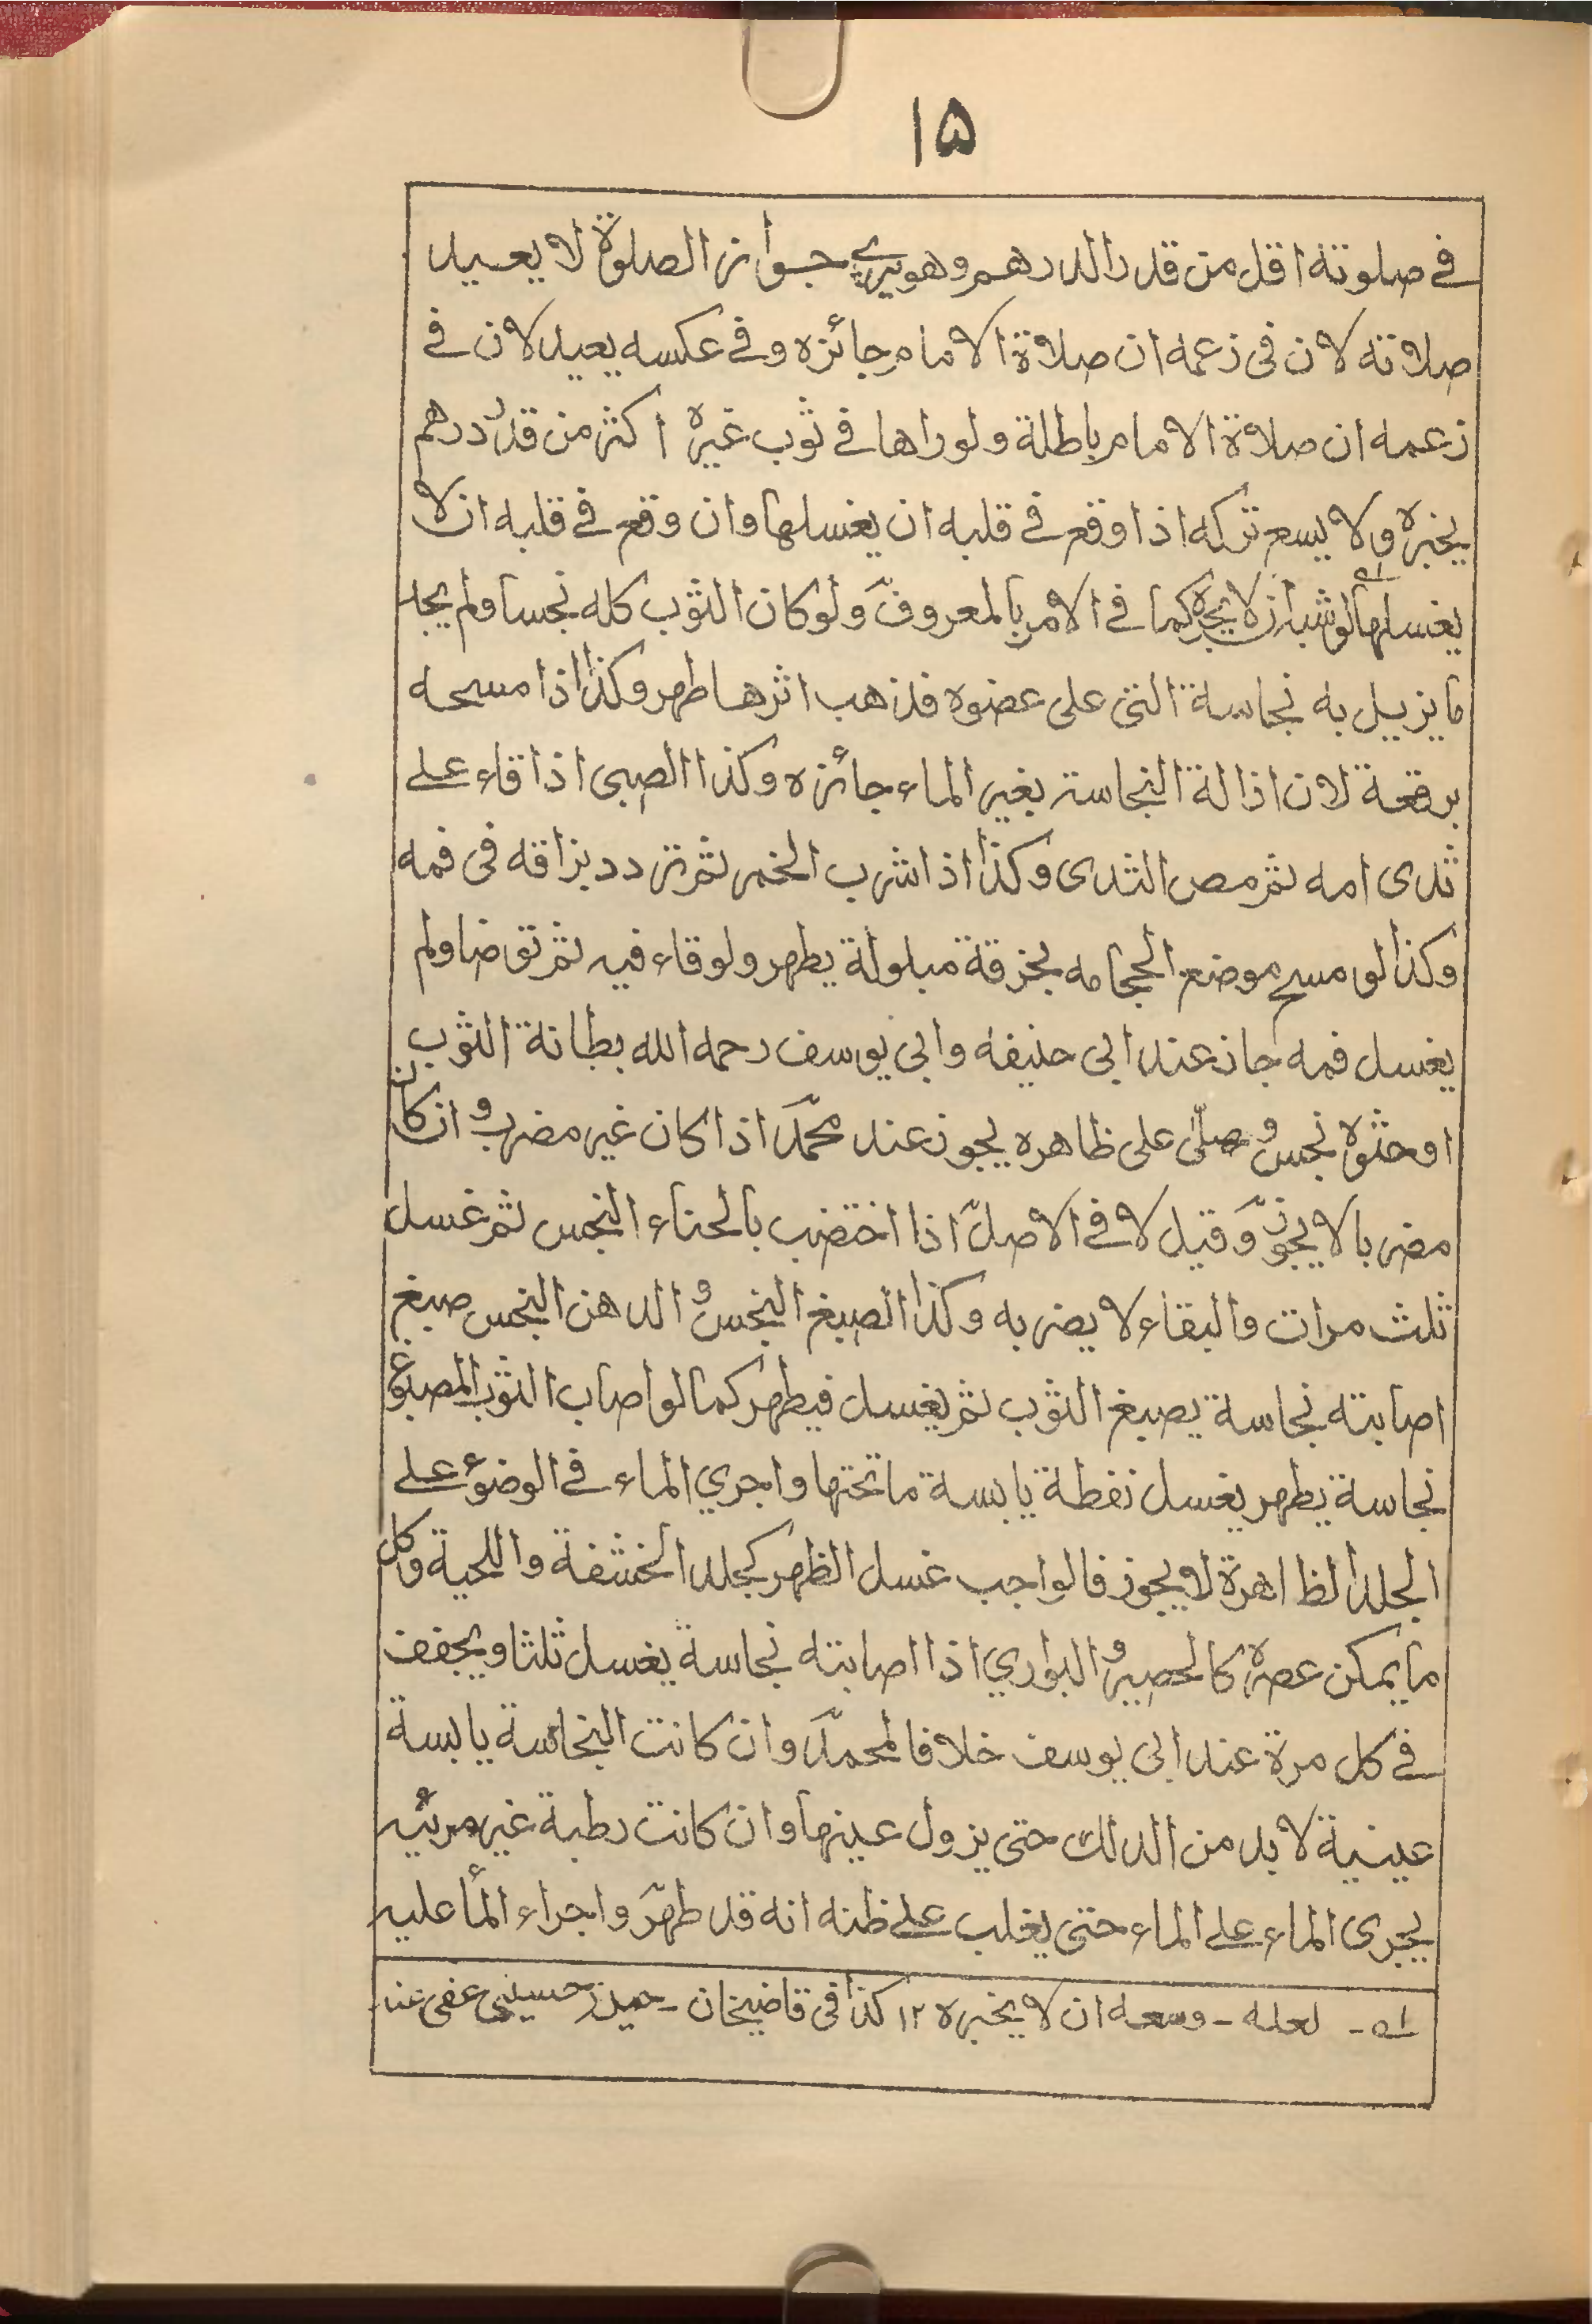 ۱۵
فے صلوتہ اقل من قدر الدرهم وهو يرے جواز الصلوة لا يعيد
صلاته لان فی زعمه ان صلاة الامام جائزه و فے عكسه يعيد لان فے
زعمه ان صلاة الامام باطلة ولوراها فے ثوب غيره اكثر من قدر درهم
يخبره ولا يسع تركه اذا وقع فے قلبه ان يغسلها وان وقع فے قلبه ان لا
يغسلها كما فے الامر بالمعروف ولو كان الثوب كله نجسا ولم يجد
ما يزيل به نجاسة التی على عضوه فذهب اثرها طهر وكذا اذا مسحه
برقعة لان اذالة النجاسة بغير الماء جائزه وكذا الصبی اذا قاء علے
ثدی امه ثم مص الثدی وكذا اذا شرب الخمر ثم تردد بزاقه فی فمه
وكذا لو مسح موضع الحجامه بخرقة مبلولة يطهر ولو قاء فيه ثم توضا ولم
يغسل فمه جاز عند ابی حنيفه وابی يوسف رحمه الله بطانة الثوب
او حشوه نجس وصلّى على ظاهره يجوز عند محمّد اذا كان غير مضرب وان كان
مضربا لا يجوز وقيل لا فے الاصل اذا اختضب بالحناء النجس ثم غسل
ثلث مرات والبقاء لا يضر به وكذا الصبغ النجس والدهن النجس صبغ
اصابته نجاسة يصبغ الثوب ثم يغسل فيطهر كما لو اصاب الثوب المصبوغ
نجاسة يطهر يغسل نفطة يابسة ما تحتها واجري الماء فے الوضوء علے
الجلد الظاهرة لا يجوز فالواجب غسل الظهر كجلد الخشفة واللحية وكل
ما يمكن عصره كالحصير والبواري اذا اصابته نجاسة يغسل ثلثا ويجفف
فے كل مرة عند ابی يوسف خلافا لمحمدؒ وان كانت النجاسة يابسة
عينية لا بد من الدلك حتى يزول عينها وان كانت رطبة غير مرئيه
يجری الماء علے الماء حتى يغلب علے ظنه انه قد طهر واجراء الماء عليه
لعله ـ وسعه ان لا يخبره ۱۲ كذا فی قاضیخان ـ حسینی عفی عنه